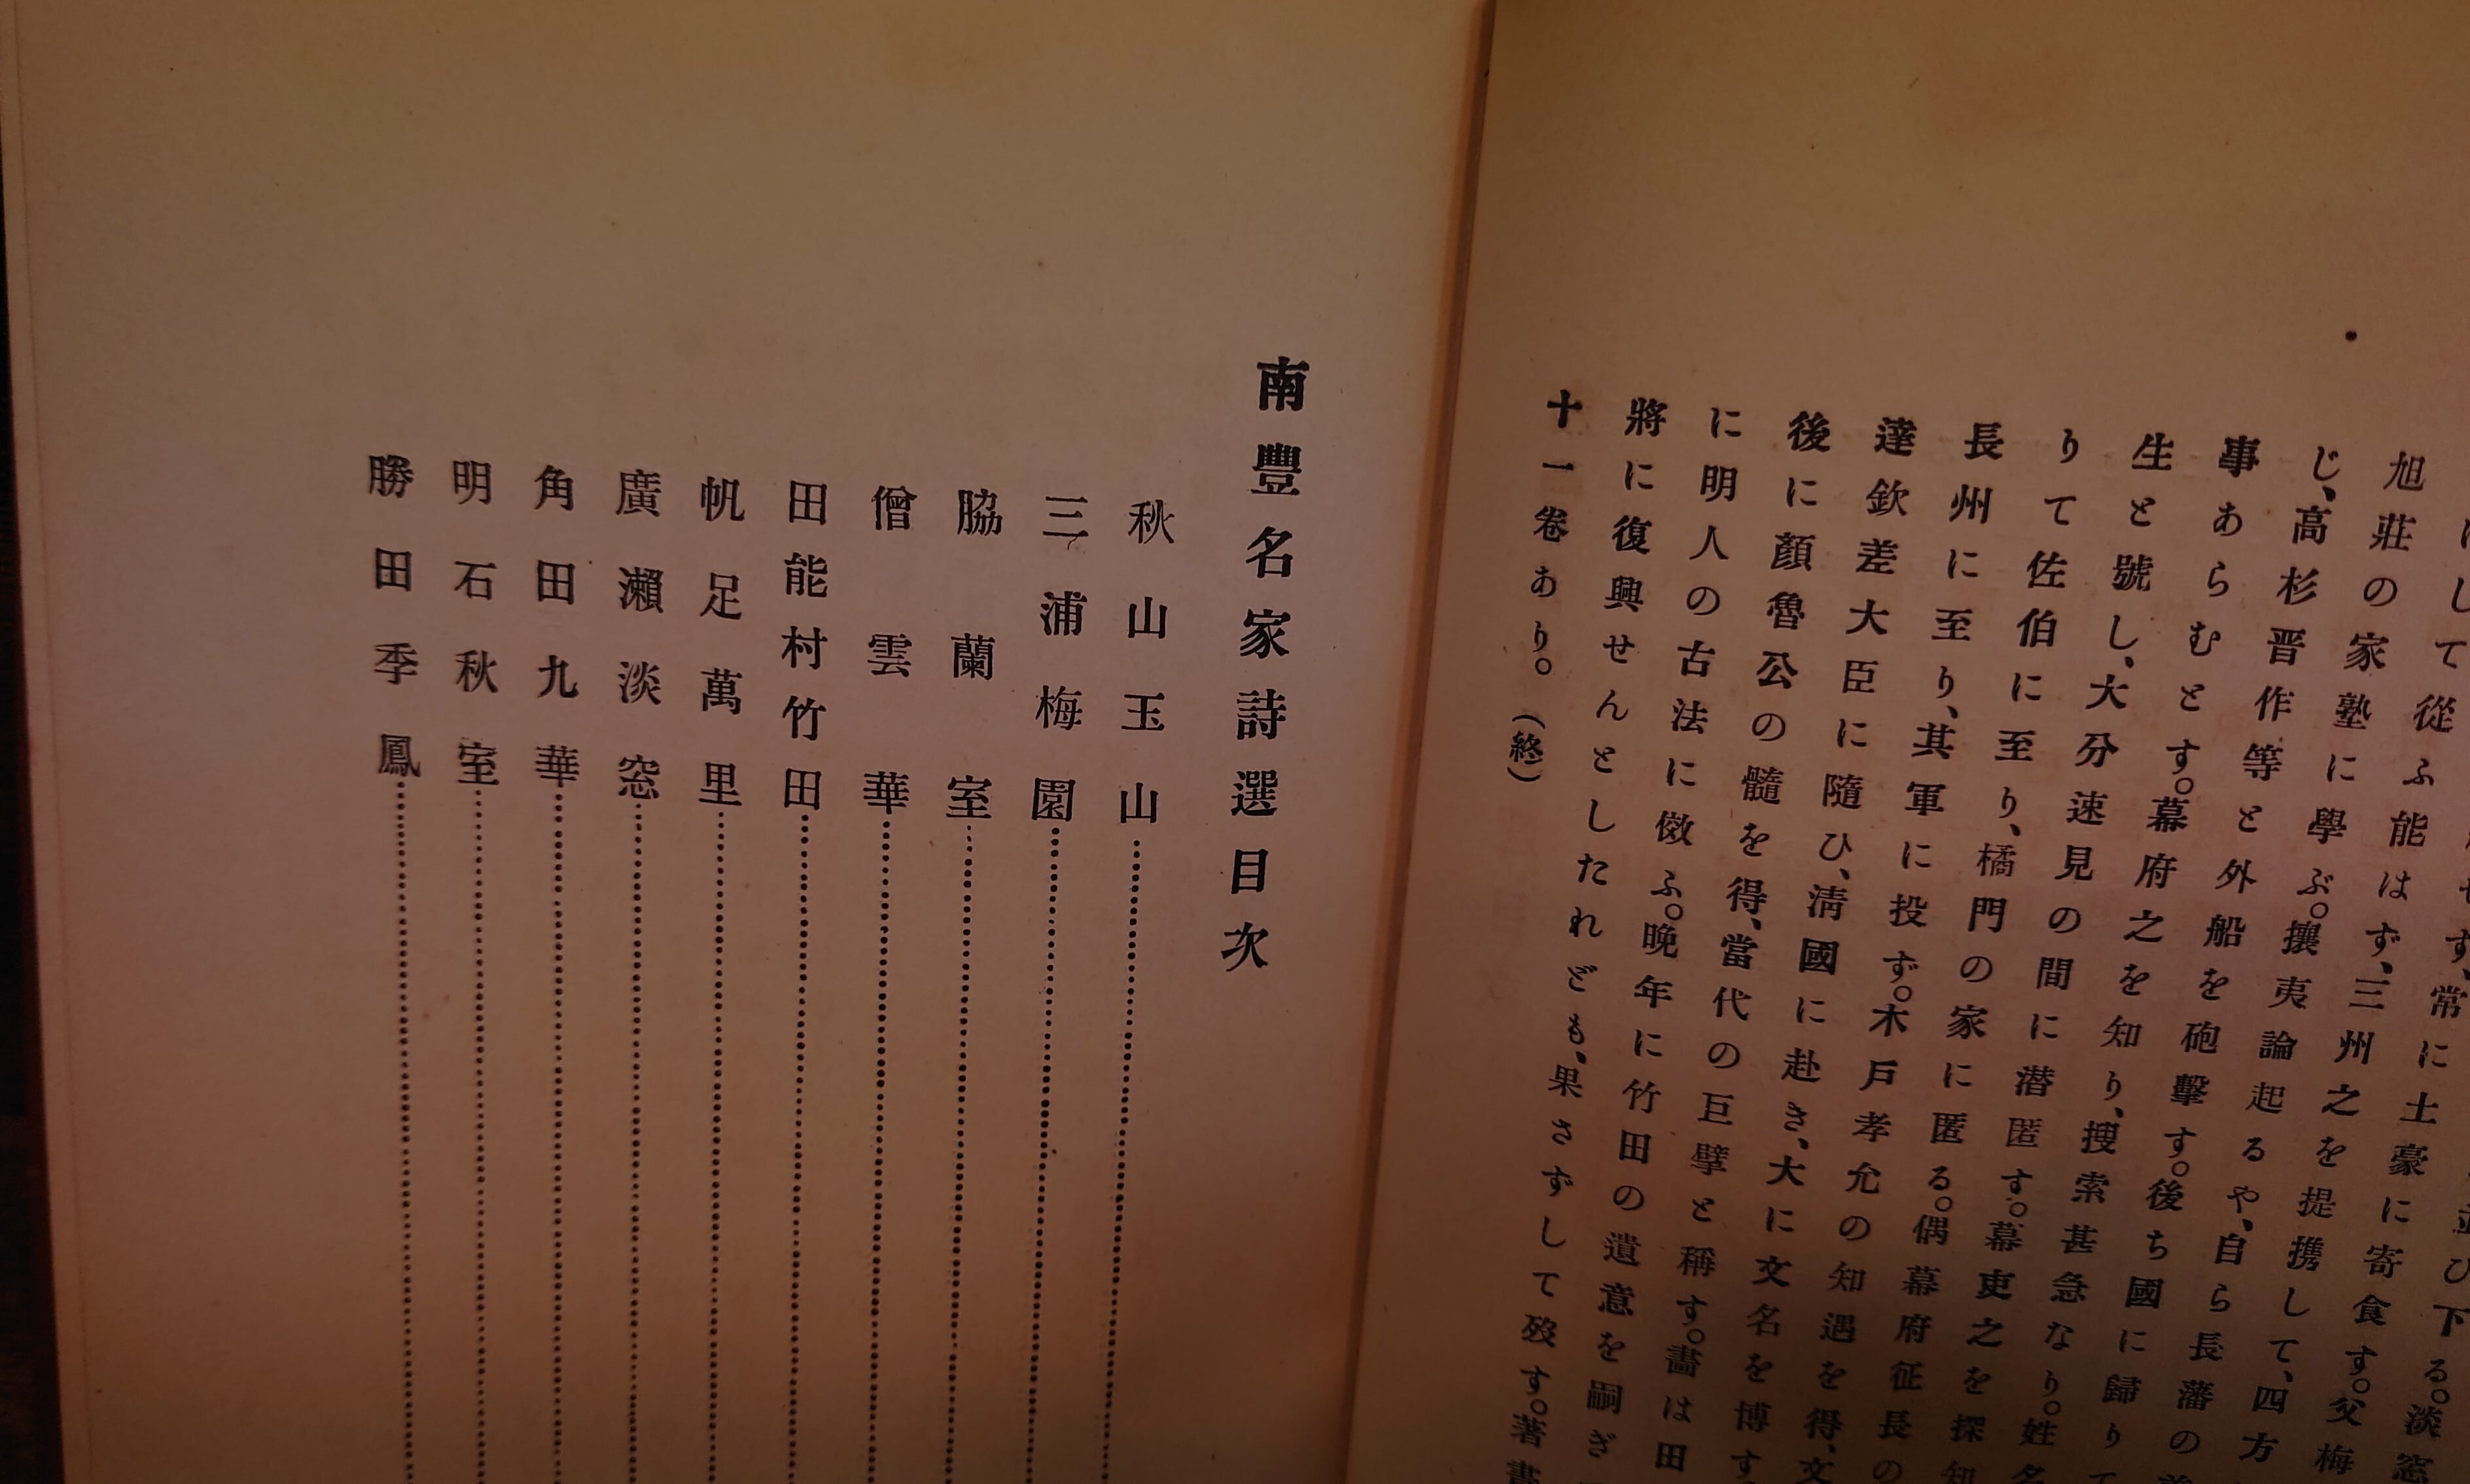 にして從ふ能はず、三州之を提携して、四方
旭莊の家塾に學ぶ。攘夷論起るや、自ら長藩の
じ、高杉晋作等と外船を砲擊す。後ち國に歸りて
事あらむとす。幕府之を知り、搜索甚急なり。姓名
生と號し、大分速見の間に潜匿す。幕吏之を探知
りて佐伯に至り、橘門の家に匿る。偶幕府征長の
長州に至り、其軍に投ず。木戶孝允の知遇を得、文
達欽差大臣に隨ひ、淸國に赴き、大に文名を博す
後に顏魯公の髓を得、當代の巨擘と稱す。畵は田
に明人の古法に傚ふ。晚年に竹田の遺意を嗣ぎ
將に復興せんとしたれども、果さずして歿す。著書
十一卷あり。(終)
南豐名家詩選目次
秋山玉山
三浦梅園
脇蘭室
僧雲華
田能村竹田
帆足萬里
廣瀨淡窓
角田九華
明石秋室
勝田季鳳